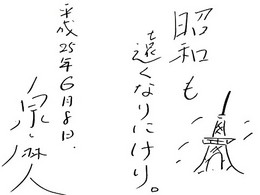 昭和も
遠くなりにけり。
平成25年6月8日.
泉麻人